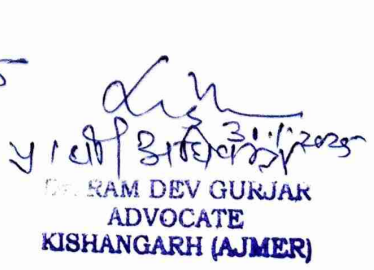 प्रार्थी अधिवक्ता
Dr. RAM DEV GURJAR
ADVOCATE
KISHANGARH (AJMER)